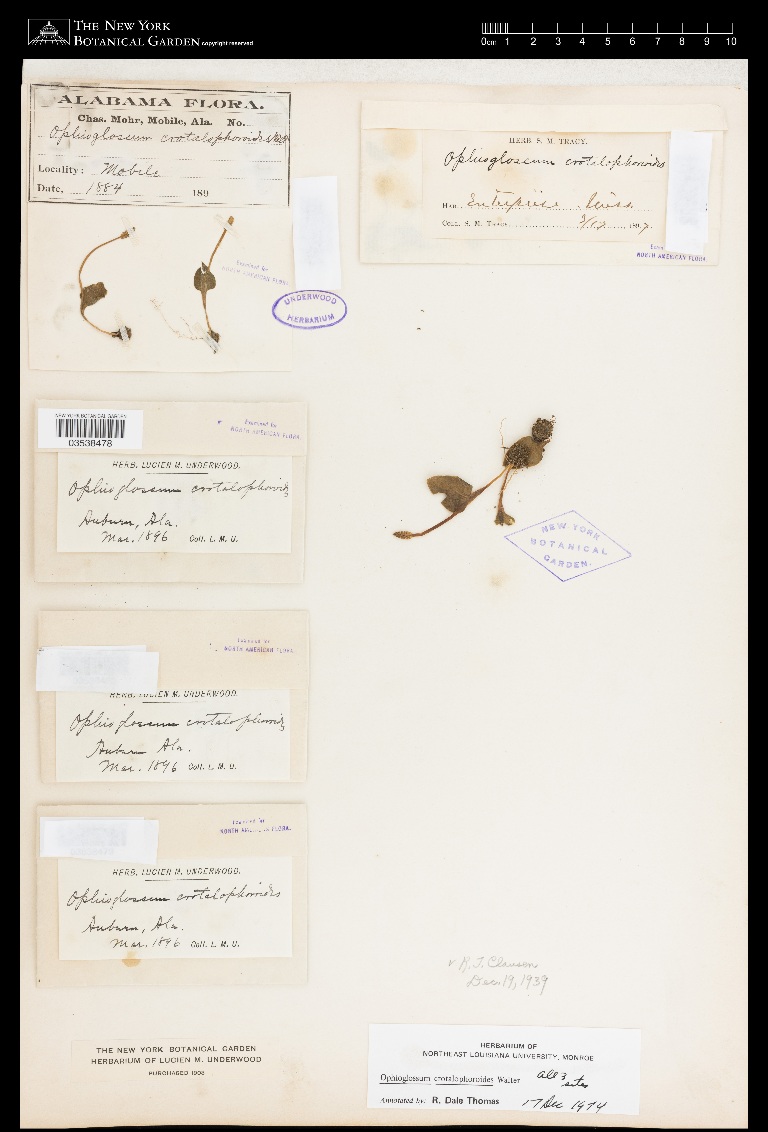 THE NEW YORK
BOTANICAL GARDEN copyright reserved
0cm 1 2 3 4 5 6 7 8 9 10
ALABAMA FLORA.
Chas. Mohr, Mobile, Ala. No.
Ophioglossum crotalophoroides Walt
Locality: Mobile
Date, 1884 189
Examined for
NORTH AMERICAN FLORA
UNDERWOOD
HERBARIUM
HERB. S. M. TRACY.
Ophioglossum crotalophoroides
HAB. Enterprise Miss.
COLL. S. M. TRACY 3/17 1897.
NORTH AMERICAN FLORA
NEW YORK BOTANICAL GARDEN
03538478
Examined for
NORTH AMERICAN FLORA.
HERB. LUCIEN M. UNDERWOOD.
Ophioglossum crotalophoroides
Auburn, Ala.
Mar. 1896 Coll. L. M. U.
NEW YORK
BOTANICAL
GARDEN.
Examined for
NORTH AMERICAN FLORA
HERB. LUCIEN M. UNDERWOOD.
Ophioglossum crotalophoroides
Auburn Ala.
Mar. 1896 Coll. L. M. U.
Examined for
NORTH AMERICAN FLORA.
HERB. LUCIEN M. UNDERWOOD.
Ophioglossum crotalophoroides
Auburn, Ala.
Mar. 1896 Coll. L. M. U.
v R. T. Clausen
Dec. 19, 1939
THE NEW YORK BOTANICAL GARDEN
HERBARIUM OF LUCIEN M. UNDERWOOD
PURCHASED 1908
HERBARIUM OF
NORTHEAST LOUISIANA UNIVERSITY, MONROE
Ophioglossum crotalophoroides Walter all 3 sites
Annotated by: R. Dale Thomas 17 Dec 1974